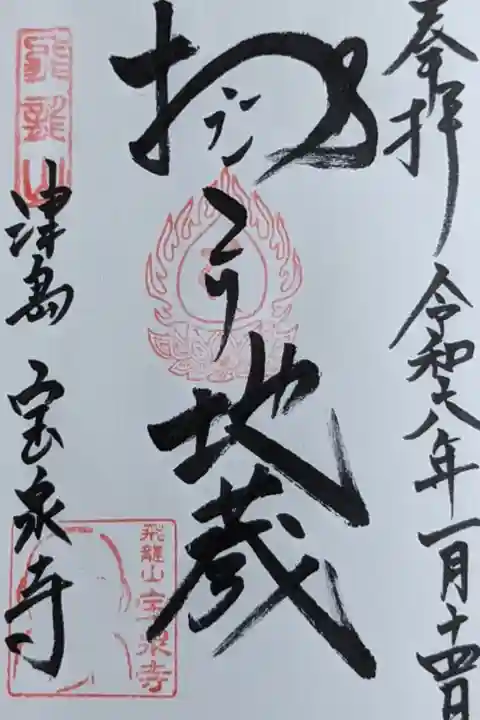 奉拝 令和六年一月十四日
おこり地蔵
プン
飛龍山
津島 宝泉寺
飛龍山
宝泉寺